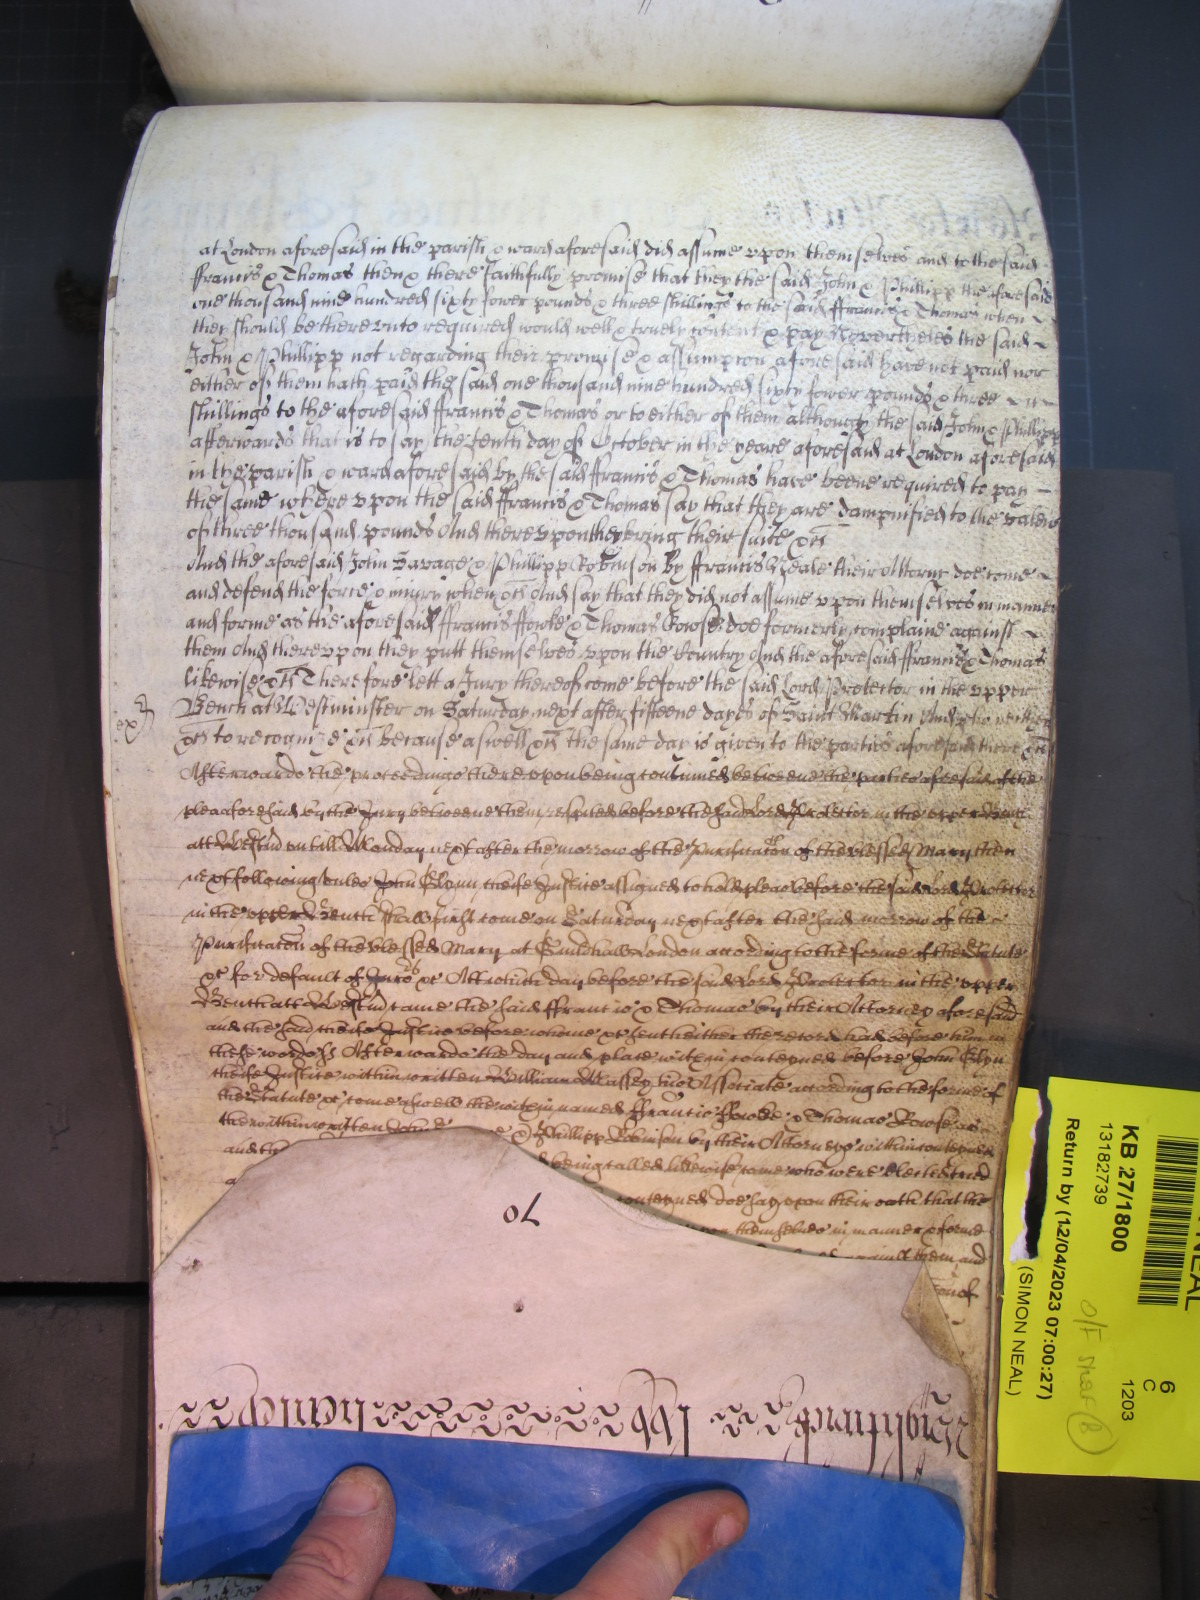 at London aforesaid in the parish & ward aforesaid did assume vpon themselves and to the said
Francis & Thomas then & there faithfully promise that they the said John & Phillipp the aforesaid
one thousand nine hundred sixty fower pounds & three shillings to the said ffrancis & Thomas when
they should be therevnto required would well & truely content & pay Neverthelesse the said
John & Phillipp not regarding their promise & assumpcon aforesaid have not paid nor
either of them hath paid the said one thousand nine hundred sixty fower pounds & three
shillings to the aforesaid ffrancis & Thomas or to either of them although the said John & Phillipp
afterwards that is to say the tenth day of October in the yeare aforesaid at London aforesaid
in the parish & ward aforesaid by the said ffrancis & Thomas have beene required to pay
the same wherevpon the said ffrancis & Thomas say that they are dampnified to the valew
of three thousand pounds And therevpon they bring their suite &c
And the aforesaid John Savage & Phillipp Robinson by ffrancis Neale their Attorny doe come
and defend the force & iniury when &c And say that they did not assume vpon themselves in manner
and forme as the aforesaid ffrancis ffowke & Thomas Rowse doe formerly complaine against
them And therevpon they putt themselves vpon the Country And the aforesaid ffrancis & Thomas
likewise &c Therefore lett a Jury thereof come before the said Lord Protector in the vpper
Bench at Westminster on Saturday next after fifteene dayes of Saint Martin And who neither
ex
&c to recognize &c because aswell &c the same day is given to the parties aforesaid there &c
Afterwards the proceedings therevpon being continued betweene the parties aforesaid of the
plea aforesaid by the Jury betweene them respited before the said Lord Protector in the vpper Bench
att Westm vntill Monday next after the morrow of the Purificaton of the blessed Mary then
next following vnles John Glynn cheife Justice assigned to hold pleas before the said Lord Protector
in the vpper Bench shall first come on Saturday next after the said morrow of the
Purificaton of the blessed Mary at Guildhall London according to the forme of the Statute
&c for default of Juro &c Att which day before the said Lord Protector in the vpper
Bench att Westm came the said ffrancis & Thomas by their Attorney aforesaid
and the said cheife Justice before whome &c sent hither the record had before him in
these words ss Afterwards the day and place within conteyned before John Glyn
cheife Justice within written William Massey his Associate according to the forme of
the Statute &c come aswell the within named ffrancis ffowke & Thomas Rowse as
the within written John & Phillipp Robinson by their Attorneys within conteyned
and the being called likewise come who were elected tried
conteyned doe say vpon their oath that the
themselves in manner & forme
against them and
70
KB 27/1800
13182739
Return by (12/04/2023 07:00:27)
(SIMON NEAL)
NEAL
6
C
1203